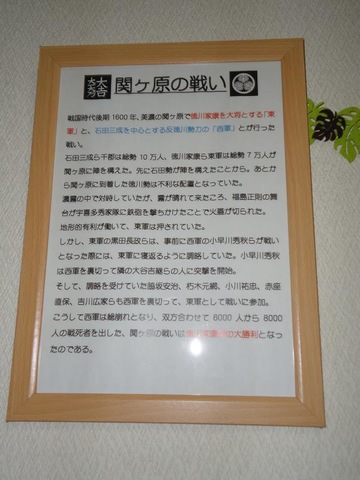 大一大万大吉 関ヶ原の戦い
戦国時代後期1600年、美濃の関ヶ原で徳川家康を大将とする「東
軍」と、石田三成を中心とする反徳川勢力の「西軍」とが行った
戦い。
石田三成ら千郡は総勢10万人、徳川家康ら東軍は総勢7万人が
関ヶ原に陣を構えた。先に石田勢が陣を構えたことから。あとか
ら関ケ原に到着した徳川勢は不利な配置となっていた。
濃霧の中で対峙していたが、霧が晴れて来たころ、福島正則の舞
台が宇喜多秀家隊に鉄砲を撃ちかけたことで火蓋が切られた。
地形的有利が働いて、東軍は押されていた。
しかし、東軍の黒田長政らは、事前に西軍の小早川秀秋らが戦い
となった際には、東軍に寝返るように調略していた。小早川秀秋
は西軍を裏切って隣の大谷吉継らの人に突撃を開始。
そして、調略を受けていた脇坂安治、朽木元網、小川祐忠、赤座
直保、吉川広家らも西軍を裏切って、東軍として戦いに参加。
こうして西軍は総崩れとなり、双方合わせて6000人から8000
人の戦死者を出した、関ケ原の戦いは徳川家康の大勝利となっ
たのである。